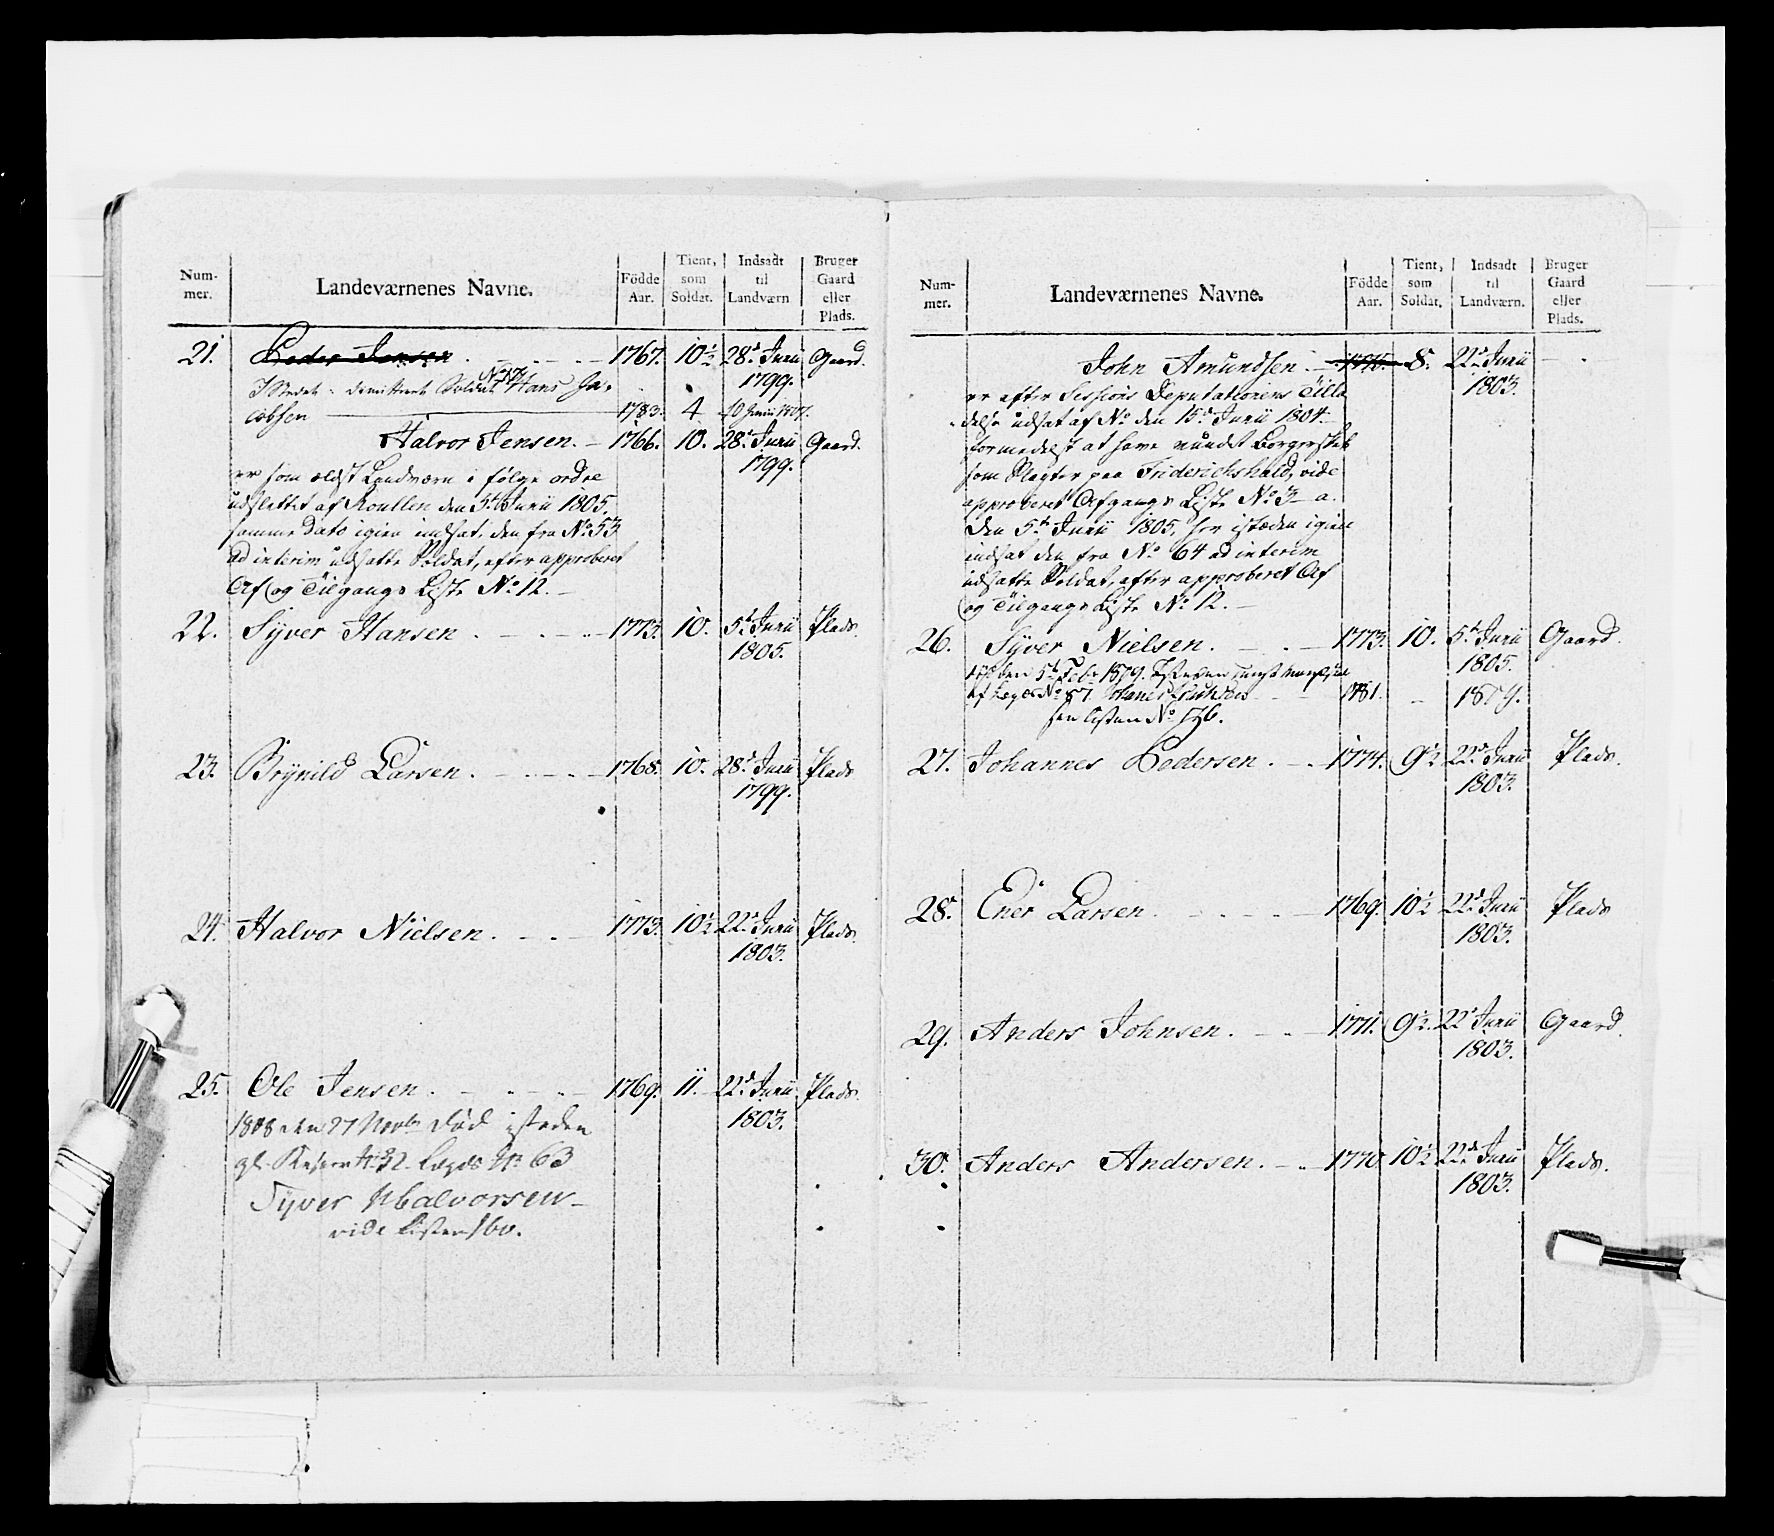 Num-
mer.
Landeværnenes Navne.
Födde
Aar.
Tient,
som
Soldat.
Indsadt
til
Landværn
Bruger
Gaard
eller
Plads.
21. Peder Jensen. 1767. 10½ 28d Junii Gaard.
1799.
I Stedet demitteret Soldat Hans Ja-
cobsen 1783. 4 10 Junii 1807.
Halvor Jensen. 1766. 10. 28d Junii Gaard.
1799.
er som ældst Landværn i følge ordre
udslettet af Roullen den 5te Junii 1805.
samme Dato igien indsat, den fra No 53
ad interim udsatte Soldat, efter approberet
Af og Tilgangs Liste No 12.
22. Syver Hansen. 1773. 10. 5te Junii Plads.
1805.
23. Brynild Larsen. 1768. 10. 28d Junii Plads
1799.
24. Halvor Nielsen. 1773. 10½ 22d Junii Plads.
1803.
25. Ole Jensen. 1769. 11. 22d Junii Plads.
1803.
1808 den 27 Novbr Död isteden
No 32 Lægds No 63
Syver Halvorsen
vide Listen 160.
Num-
mer.
Landeværnenes Navne.
Födde
Aar.
Tient,
som
Soldat.
Indsadt
til
Landværn.
Bruger
Gaard
eller
Plads.
John Amundsen. 8. 22d Junii
1803.
er efter Sessions Deputationens Tilla
delse udsat af No den 15d Junii 1804
formedelst at have vundet Borgerskab
som Slagter paa Friderichshald, vide
approberet Afgangs Liste No 3 a.
Den 5te Junii 1805, her isteden igien
indsat den fra No 64 ad interim
udsatte Soldat, efter approberet Af
og Tilgangs Liste No 12.
26. Syver Nielsen. 1773. 10. 5te Junii Gaard.
1805.
den 5te Febr 1809. Isteden
af Lægd No 87 Johannes 1781. 1809.
Listen No 176.
27. Johannes Pedersen. 1774. 9½ 22d Junii Plads.
1803.
28. Ener Larsen. 1769. 10½ 22d Junii Plads
1803.
29. Anders Johnsen. 1771. 9½. 22d Junii Gaard
1803.
30. Anders Andersen. 1770 10½ 22d Junii Plads.
1803.